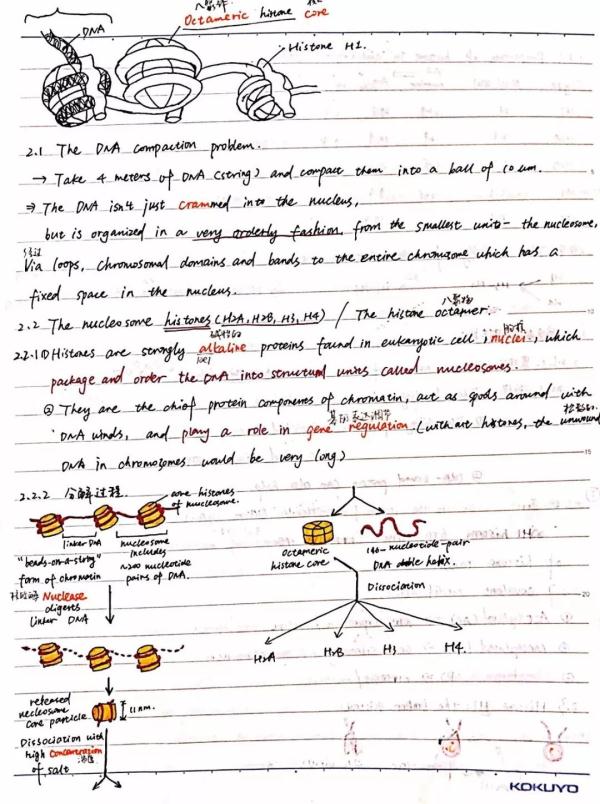 八聚体
Octameric histone core
DNA
Histone H1.
2.1 The DNA compaction problem.
→ Take 4 meters of DNA (string) and compact them into a ball of 10 um.
⇒ The DNA isn't just crammed into the nucleus,
but is organized in a very orderly fashion, from the smallest units - the nucleosome,
经过
Via loops, chromosomal domains and bands to the entire chromosome which has a
fixed space in the nucleus.
八聚物
2.2 The nucleosome histones (H2A, H2B, H3, H4) / The histone octamer.
碱性的
2.2.1① Histones are strongly alkaline proteins found in eukaryotic cell nuclei, which
package and order the DNA into structural units called nucleosomes.
② They are the chief protein components of chromatin, act as spools around with
基因表达调节
DNA winds, and play a role in gene regulation. (without histones, the unwound
DNA in chromosomes would be very long)
15
2.2.2 分解过程.
core histones
of nucleosome.
linker DNA
nucleosome
includes
~200 nucleotide
pairs of DNA.
"beads-on-a-string"
form of chromatin
Nuclease
digests
linker DNA
released
necleosome
core particle
11 nm.
Dissociation with
high concentration
浓度
of salt
octameric
histone core
146-nucleotide-pair
DNA double helix.
Dissociation
20
H2A H2B H3 H4.
KOKUYO